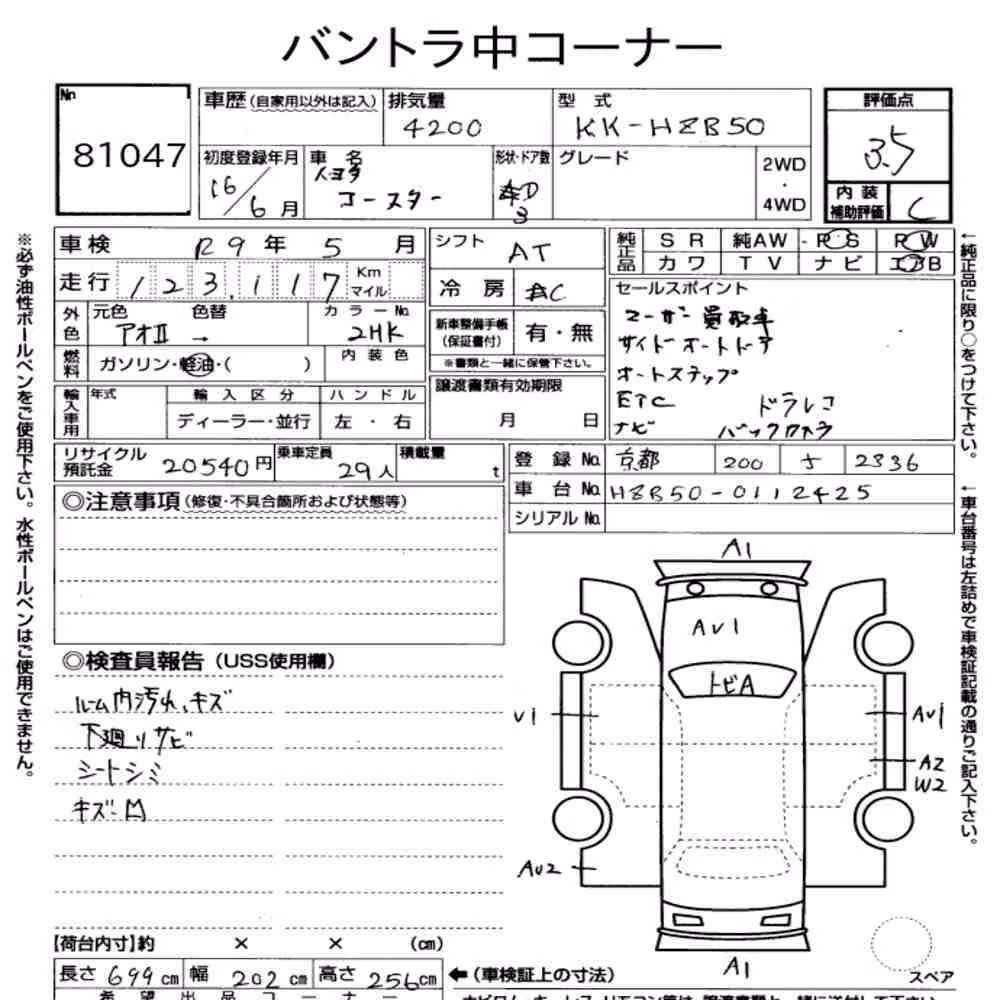 バントラ中コーナー
No 81047
車歴(自家用以外は記入) 排気量 4200 型式 KK-HZB50
評価点 3.5
初度登録年月 16/6月 車名 トヨタ コースター 形状・ドア数 3 グレード 2WD・4WD
内装補助評価 C
車検 R9年5月
走行 123,117 Km マイル
シフト AT
冷房 AC
純正品 SR 純AW PS PW
カワ TV ナビ エアB
外色 元色 アオII 色替 → カラーNo 2HK
燃料 ガソリン・軽油・( ) 内装色
新車整備手帳(保証書付) 有・無
※書類と一緒に保管下さい。
セールスポイント
ユーザー買取車
サイドオートドア
オートステップ
ETC ドラレコ
ナビ バックカメラ
輸入車用 年式 輸入区分 ハンドル
ディーラー・並行 左・右
譲渡書類有効期限
月 日
リサイクル預託金 20540円 乗車定員 29人 積載量 t
登録No 京都 200 さ 2336
車台No HZB50-0112425
シリアルNo
◎注意事項(修復・不具合箇所および状態等)
◎検査員報告(USS使用欄)
ルーム内汚れ、キズ
下廻りサビ
シートシミ
キズ・凹
A1
AU1
トビA
U1
AU1
A2
W2
AU2
A1
スペア
【荷台内寸】約 × × (cm)
長さ 699cm 幅 202cm 高さ 256cm ←(車検証上の寸法)
希望出品コーナー
※必ず油性ボールペンをご使用下さい。水性ボールペンはご使用できません。
←純正品に限り○をつけて下さい。
←車台番号は左詰めで車検証記載の通りご記入下さい。